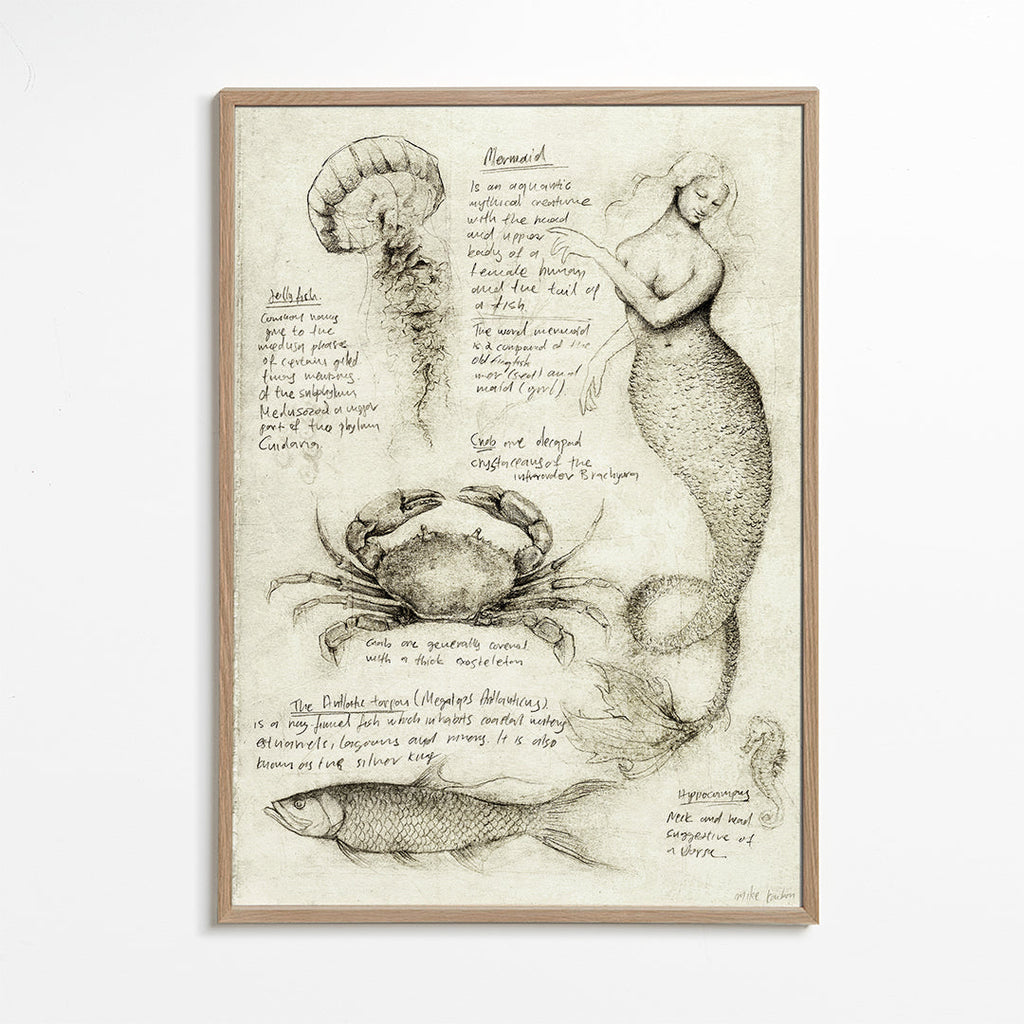 Mermaid
Is an aquantic
mythical creature
with the head
and upper
body of a
female human
and the tail of
a fish.
The word mermaid
is a compound of the
old English
mer (sea) and
maid (girl).
Jelly fish.
Common names
give to the
medusa phases
of certain
of the subphylum
Medusozoa a major
part of the phylum
Cnidaria.
Crab are decapod
crystaceans of the
infraorder Brachyura
Crab are generally covered
with a thick exoskeleton
The Antlatic tarpon (Megalops Atlanticus)
is a ray-finned fish which inhabits coastal waters
estuaries, lagoons and rivers. It is also
known as the silver king
Hippocampus
Neck and head
suggestive of
a horse
Mike